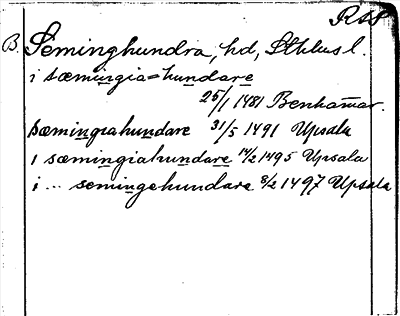 RSS
B. Seminghundra, hd, Sthlms l.
i sæmingia=hundare
25/1 1481 Benhamar.
sæmingiahundare 31/5 1491 Upsala
i sæmingiahundare 14/2 1495 Upsala
i ... semingehundare 8/2 1497 Upsala